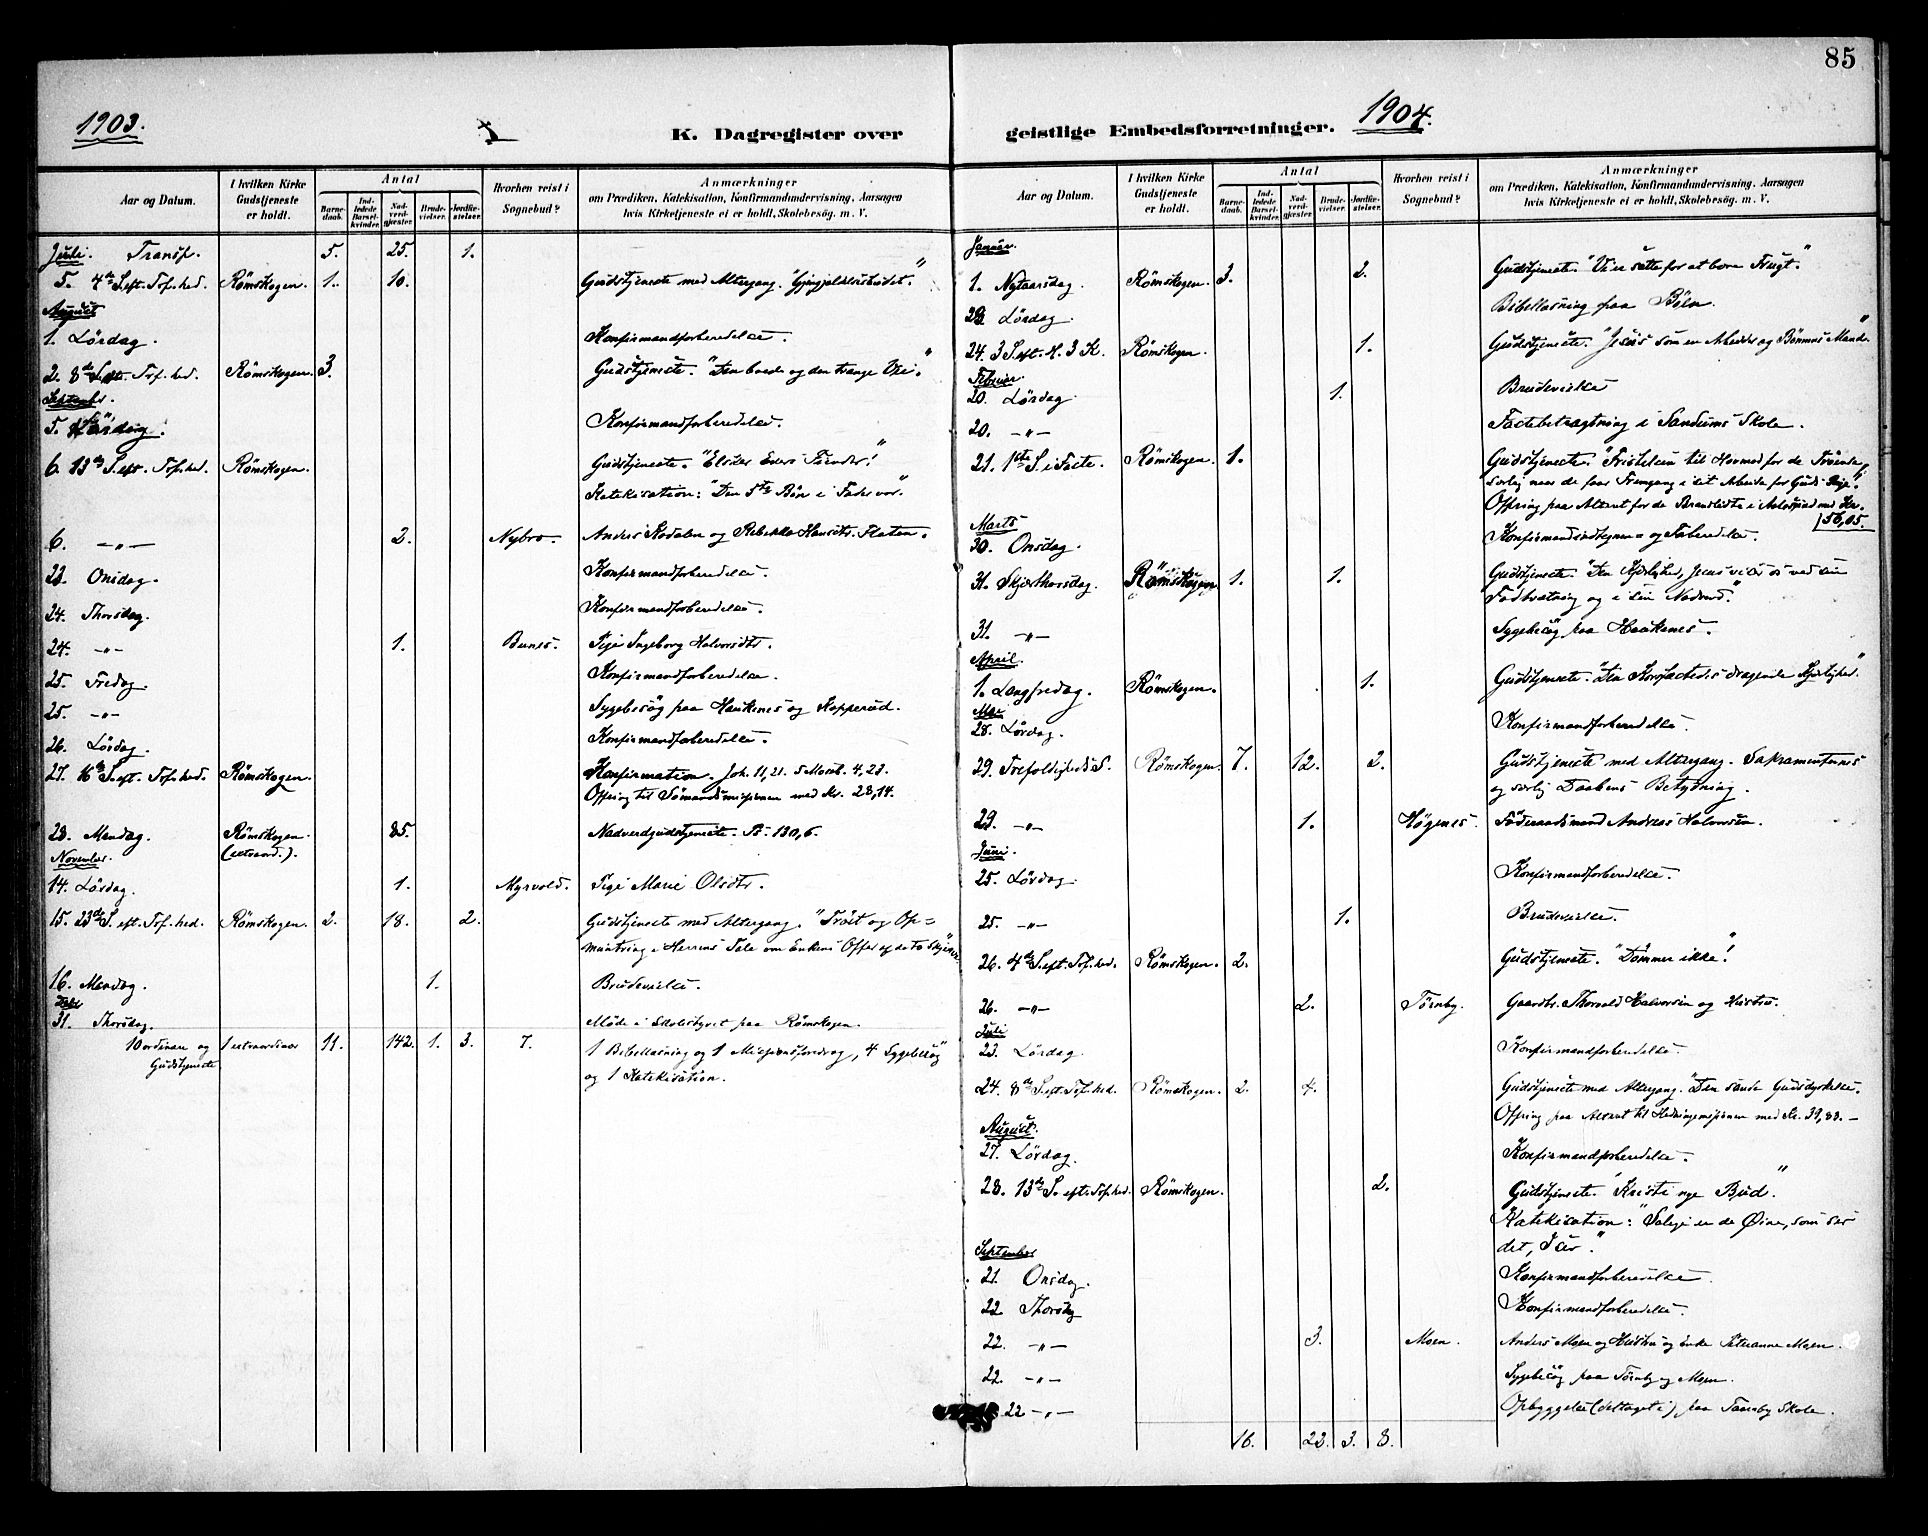 85
1903.
1904.
K. Dagregister over
geistlige Embedsforretninger.
Aar og Datum.
I hvilken Kirke Gudstjeneste er holdt.
Antal
Barnedaab.
Indledede Barselkvinder.
Nadverdgjester.
Brudevielser.
Jordfæstelser.
Hvorhen reist i Sognebud?
Anmærkninger
om Prædiken, Katekisation, Konfirmandundervisning, Aarsagen
hvis Kirketjeneste ei er holdt, Skolebesøg. m. V.
Juli. Transp. 5. 25. 1.
5. 4de S. eft. Tref. hed. Römskogen. 1. 10. Gudstjeneste med Altergang.
August
1. Lördag. Konfirmandforberedelse.
2. 8de S. eft. Tref. hed. Römskogen. 3. Gudstjeneste. "Den brede og den trange Vei."
September.
5. Lördag. Konfirmandforberedelse.
6. 13de S. eft. Tref. hed. Römskogen. Gudstjeneste. "Elsker Eders Fiender!"
Katekisation: "Den 5te Bön i Fader vor".
6. —"— 2. Nybro. Anders og Rebekka Hansdtr. Flaten.
23. Onsdag. Konfirmandforberedelse.
24. Thorsdag. Konfirmandforberedelse.
24. —"— 1. Bunes. Pige Ingeborg Halvorsdtr.
25. Fredag Konfirmandforberedelse.
25. —"— Sygebesög paa Haukenes og Kopperud.
26. Lördag. Konfirmandforberedelse.
27. 16de S. eft. Tref. hed. Römskogen. Konfirmation. Joh. 11,21. 5 Moseb. 4,23.
Offring til Sömandsmissionen med Kr. 28,14.
28. Mandag. Römskogen. (extraord.). 85. Nadverdgudstjeneste. Ps. 130,6.
November.
14. Lördag. 1. Myrvold. Pige Marie Olsdtr.
15. 23de S. eft. Tref. hed. Römskogen. 2. 18. 2. Gudstjeneste med Altergang. "Tröst og Op=
muntring i Herrens Tale om Enkens Offer af de to Skjerver."
16. Mandag. 1. Brudevielse.
Decbr
31. Thorsdag. Möde i Skolestyret paa Römskogen.
10 ordinære og 1 extraordinær 11. 142. 1. 3. 7. 1 Bibellæsning og 1 Missionsforedrag, 4 Sygebesög
Gudstjeneste og 1 Katekisation.
Aar og Datum.
I hvilken Kirke Gudstjeneste er holdt.
Antal
Barnedaab.
Indledede Barselkvinder.
Nadverdgjester.
Brudevielser.
Jordfæstelser.
Hvorhen reist i Sognebud?
Anmærkninger
om Prædiken, Katekisation, Konfirmandundervisning, Aarsagen
hvis Kirketjeneste ei er holdt, Skolebesøg. m. V.
Januar.
1. Nytaarsdag. Römskogen. 3. 2. Gudstjeneste. "Vi er satte for at bære Frugt."
23 Lördag. Bibellæsning paa Bön.
24. 3 S. eft. H. 3 K. Römskogen. 1. Gudstjeneste. "Jesus som en Arbeides og Bönnens Mand"
Februar.
20. Lördag. 1. Brudevielse
20. —"— Fastebetragtning i Sandums Skole.
21. 1ste S. i Faste. Römskogen. 1. Gudstjeneste. "Fristelsen til Hovmod for de Troende
særlig naar de faar Fremgang i sit Arbeide for Guds Rige".
Offring paa Alteret for de Brandlidte i Aalesund med Kr.
56,05.
Marts
30. Onsdag. Konfirmandindtegnen og Forberedelse.
31. Skjærthorsdag. Römskogen 1. 1. Gudstjeneste. "Den Kjærlighed, Jesus viser os ved sin
Fodtvætning og i sin Nadverd."
31. —"— Sygebesög paa Haukenes.
April.
1. Langfredag. Römskogen. 1. Gudstjeneste. "Den Korsfæstedes dragende Kjærlighed."
Mai
28. Lördag. Konfirmandforberedelse.
29. Trefoldigheds S. Römskogen. 7. 12. 2. Gudstjeneste med Altergang. Sakramenternes
og særlig Daabens Betydning.
29. —"— 1. Högenes. Föderaadsmand Andreas Halvorsen.
Juni.
25. Lördag. Konfirmandforberedelse.
25. —"— 1. Brudevielse.
26. 4de S. eft. Tref. hed. Römskogen. 2. Gudstjeneste. "Dömmer ikke"!
26. —"— 2. Törnby. Gaardbr. Thorvald Halvorsen og Hustru.
Juli
23. Lördag. Konfirmandforberedelse.
24. 8de S. eft. Tref. hed. Römskogen. 2. 4. Gudstjeneste med Altergang. "Den sande Gudsdyrkelse.
Offring paa Alteret til Hedningemissionen med Kr. 39,83.—
August.
27. Lördag. Konfirmandforberedelse.
28. 13de S. eft. Tref. hed. Römskogen. 2. Gudstjeneste. "Kristi nye Bud."
Katekisation: "Salige er de Øine, som ser
det, I ser."
September
21. Onsdag. Konfirmandforberedelse.
22 Thorsdag Konfirmandforberedelse.
22. —"— 3. Moen. Anders Moen og Hustru og Enke Peterianne Moen.
22. —"— Sygebesög paa Törnby og Moen.
22 —"— Opbyggelse (deltaget i) paa Törnby Skole.
16. 22. 3. 8.